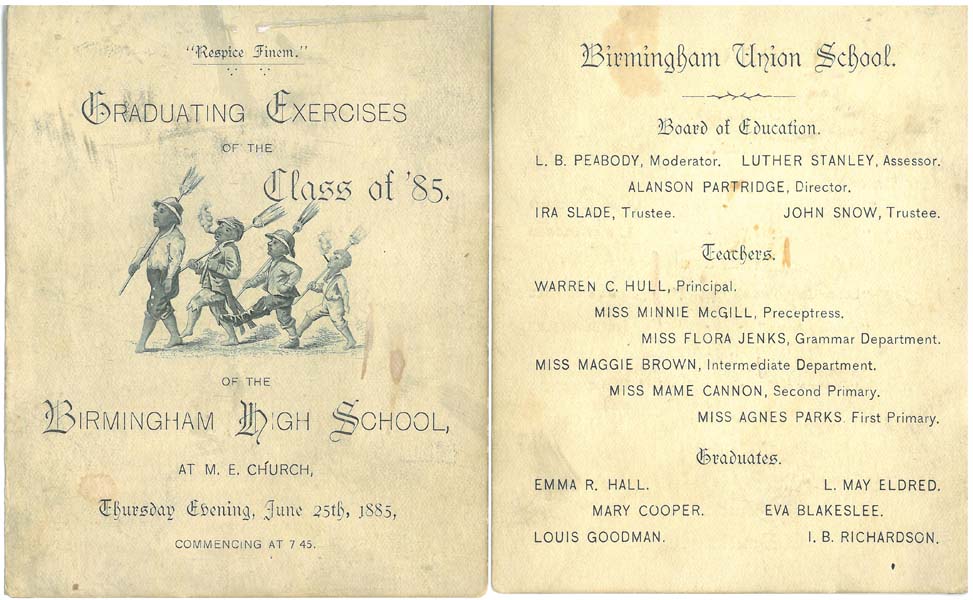 "Respice Finem."
GRADUATING EXERCISES
OF THE
Class of '85.
OF THE
BIRMINGHAM HIGH SCHOOL,
AT M. E. CHURCH,
Thursday Evening, June 25th, 1885,
COMMENCING AT 7 45.
Birmingham Union School.
Board of Education.
L. B. PEABODY, Moderator. LUTHER STANLEY, Assessor.
ALANSON PARTRIDGE, Director.
IRA SLADE, Trustee. JOHN SNOW, Trustee.
Teachers.
WARREN C. HULL, Principal.
MISS MINNIE McGILL, Preceptress.
MISS FLORA JENKS, Grammar Department.
MISS MAGGIE BROWN, Intermediate Department.
MISS MAME CANNON, Second Primary.
MISS AGNES PARKS. First Primary.
Graduates.
EMMA R. HALL. L. MAY ELDRED.
MARY COOPER. EVA BLAKESLEE.
LOUIS GOODMAN. I. B. RICHARDSON.